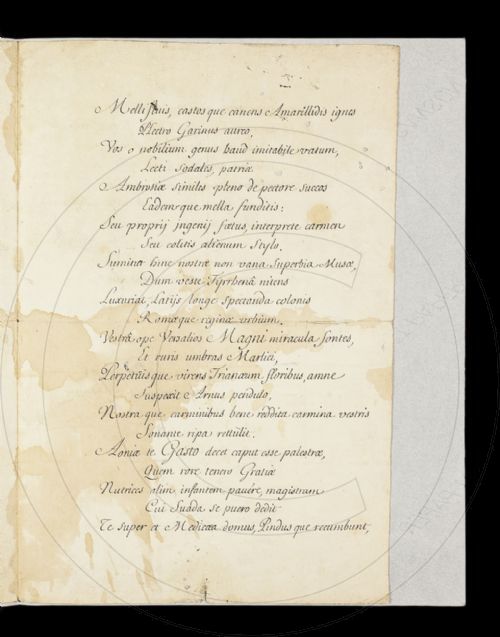 Mellifluis, castosque canens Amarillidis ignes
Plectro Garinus aureo,
Vos o nobilium genus haud imitabile vatum,
Lecti Sodales, patriæ
Ambrosiæ similes pleno de pectore succos
Eademque mella funditis:
Seu proprij jngenij fœtus, interprete carmen
Seu colitis alienum Stylo.
Sumitur hinc nostræ non vana Superbia Musæ,
Dum veste Tyrrhenâ nitens
Luxuriat, Latijs longe spectanda colonis
Romæque reginæ urbium.
Vestrâ ope Versalios Magni miracula fontes,
Et ruris umbras Marlici,
Perpetuisque virens Trianæum floribus, amne
Suspexit Arnus pendulo,
Nostraque carminibus bene reddita carmina vestris
Sonante ripa rettulit.
Aoniæ te Gasto decet caput esse palestræ,
Quem rore tenero Gratiæ
Nutrices olim infantem pavére, magistram
Cui Suada se puero dedit
Te super et Medicæa domus, Pindusque recumbunt,